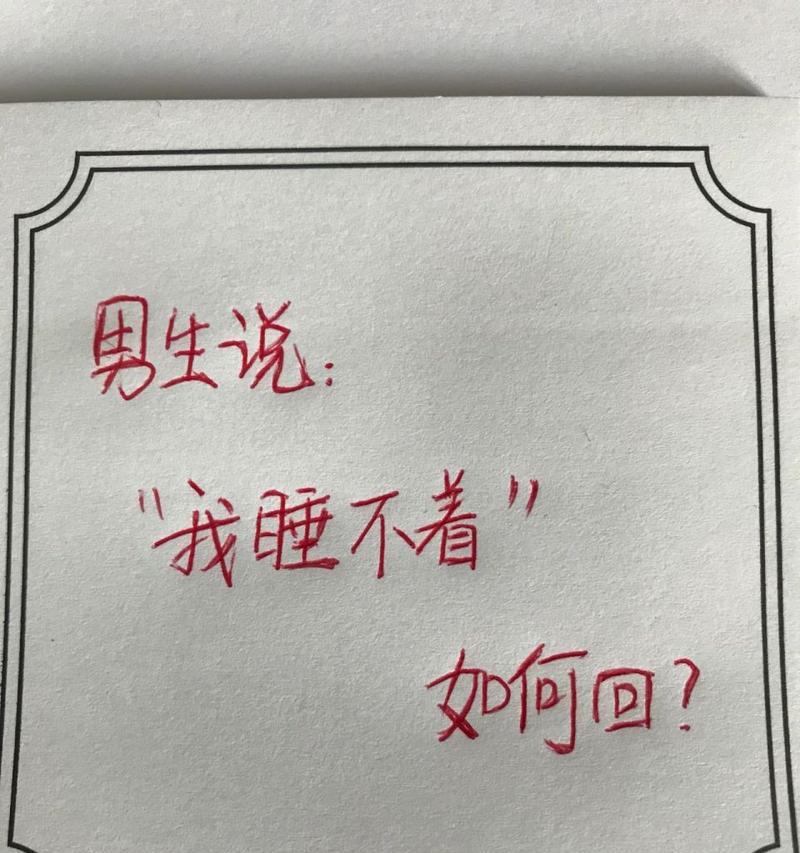 男生说:
"我睡不着"
如何回?